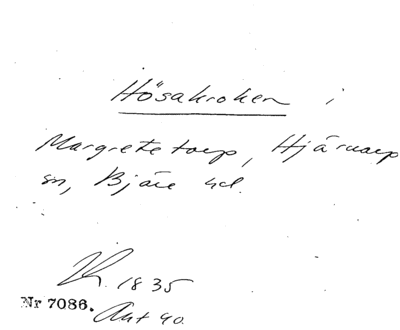 Hösakroken i
Margretetorp, Hjärnarp
sn, Bjäre hd.
K. 1835
Nr 7086.
Akt 90.